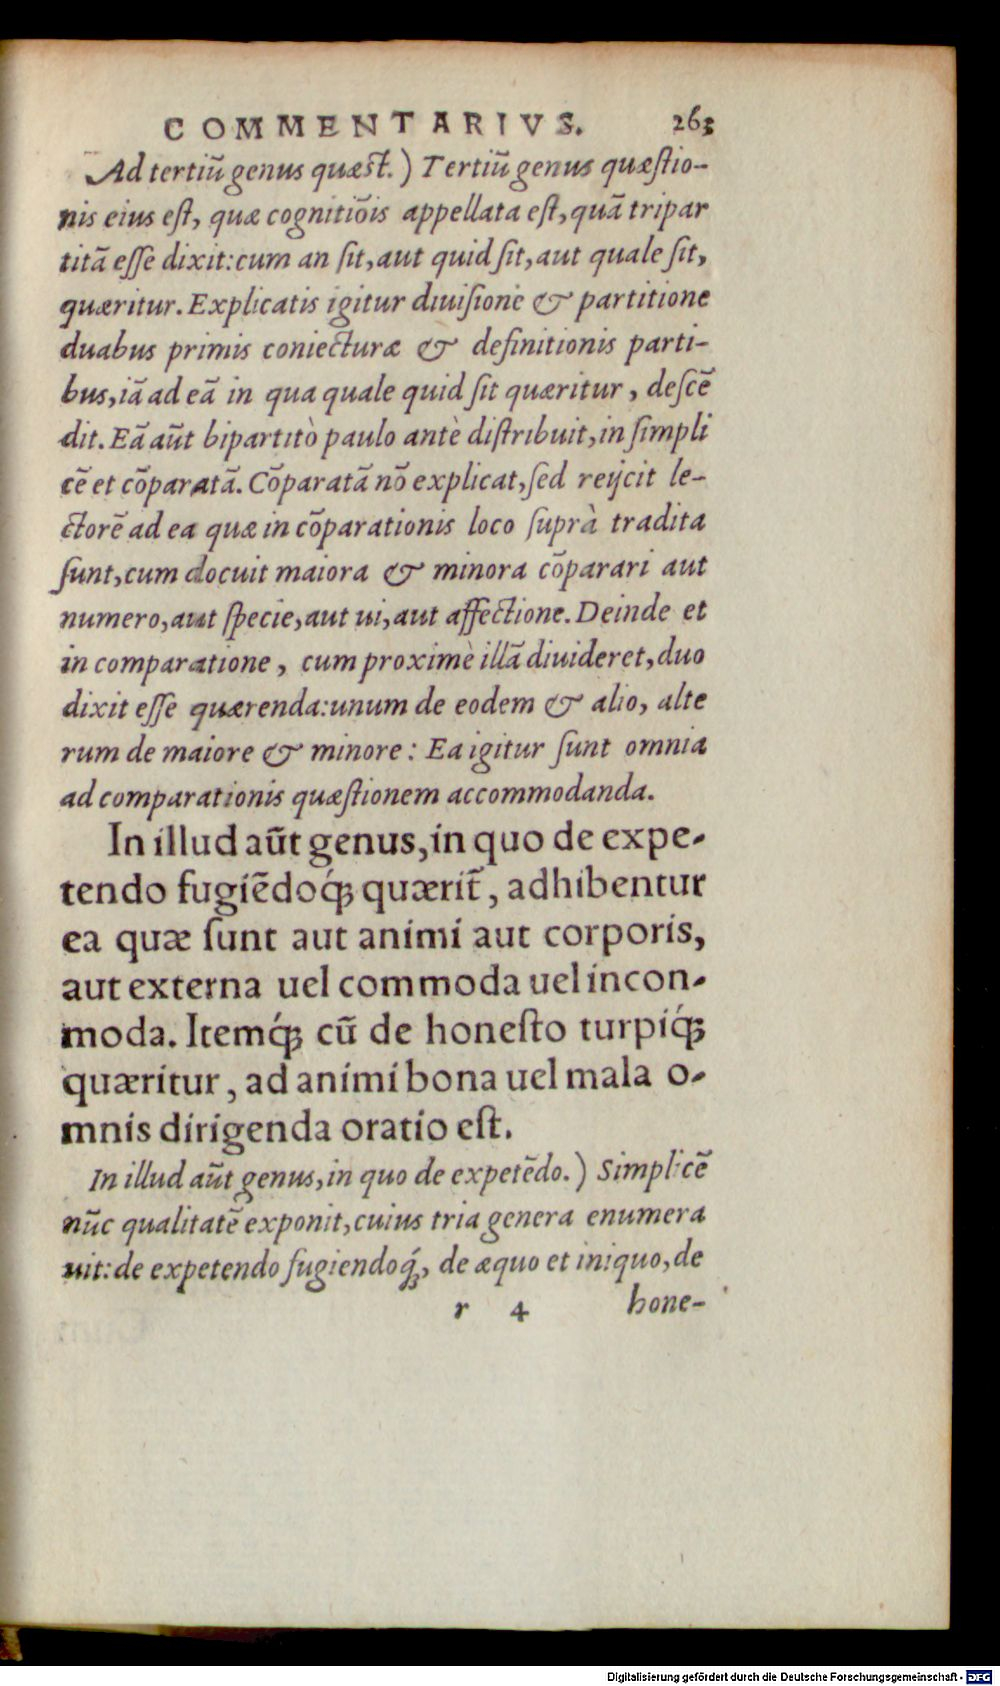 COMMENTARIVS. 263
Ad tertiū genus quæst.) Tertiū genus quæſtio-
nis eius eſt, quæ cognitiōis appellata eſt, quā tripar
titā eſſe dixit: cum an ſit, aut quid ſit, aut quale ſit,
quæritur. Explicatis igitur diuiſione & partitione
duabus primis coniecturæ & definitionis parti-
bus, iā ad eā in qua quale quid ſit quæritur, deſcē
dit. Eā aūt bipartitò paulo antè diſtribuit, in ſimpli
cē et cōparatā. Cōparatā nō explicat, ſed reijcit le-
ctorē ad ea quæ in cōparationis loco ſuprà tradita
ſunt, cum docuit maiora & minora cōparari aut
numero, aut ſpecie, aut ui, aut affectione. Deinde et
in comparatione, cum proximè illā diuideret, duo
dixit eſſe quærenda: unum de eodem & alio, alte
rum de maiore & minore: Ea igitur ſunt omnia
ad comparationis quæſtionem accommodanda.
In illud aūt genus, in quo de expe-
tendo fugiēdoq́ꝫ quærit̃, adhibentur
ea quæ ſunt aut animi aut corporis,
aut externa uel commoda uel incon-
moda. Itemq́ꝫ cū de honeſto turpiq́ꝫ
quæritur, ad animi bona uel mala o-
mnis dirigenda oratio eſt.
In illud aūt genus, in quo de expetēdo.) Simplicē
nūc qualitatē exponit, cuius tria genera enumera
uit: de expetendo fugiendoq́ꝫ, de æquo et iniquo, de
r 4 hone-
Digitalisierung gefördert durch die Deutsche Forschungsgemeinschaft - DFG